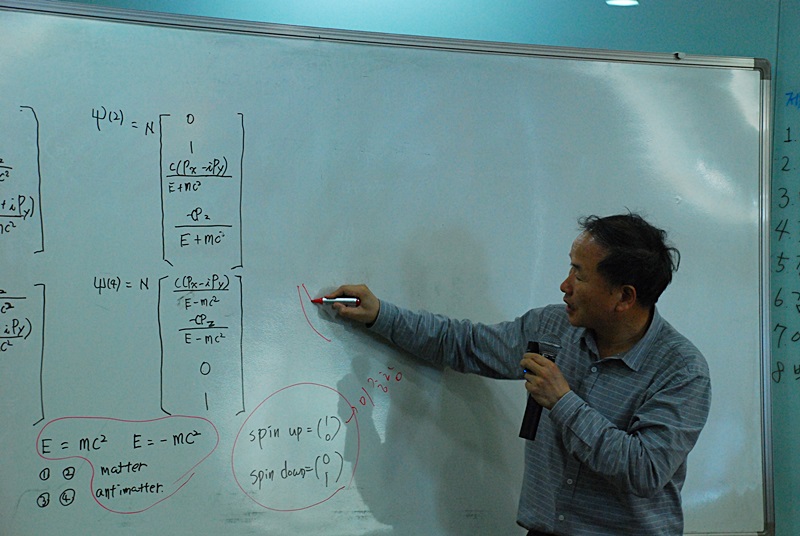 ψ(2) = N [ 0
1
c(Px-iPy)
E+mc²
-CPz
E+mc² ]
+iPy)
mc²
ψ(4) = N [ c(Px-iPy)
E-mc²
-CPz
E-mc²
0
1 ]
iPy)
mc²
E = mc² E = -mc²
① ② matter
③ ④ antimatter.
spin up = (1
0)
spin down = (0
1)
1
2
3
4
5
6
7
8